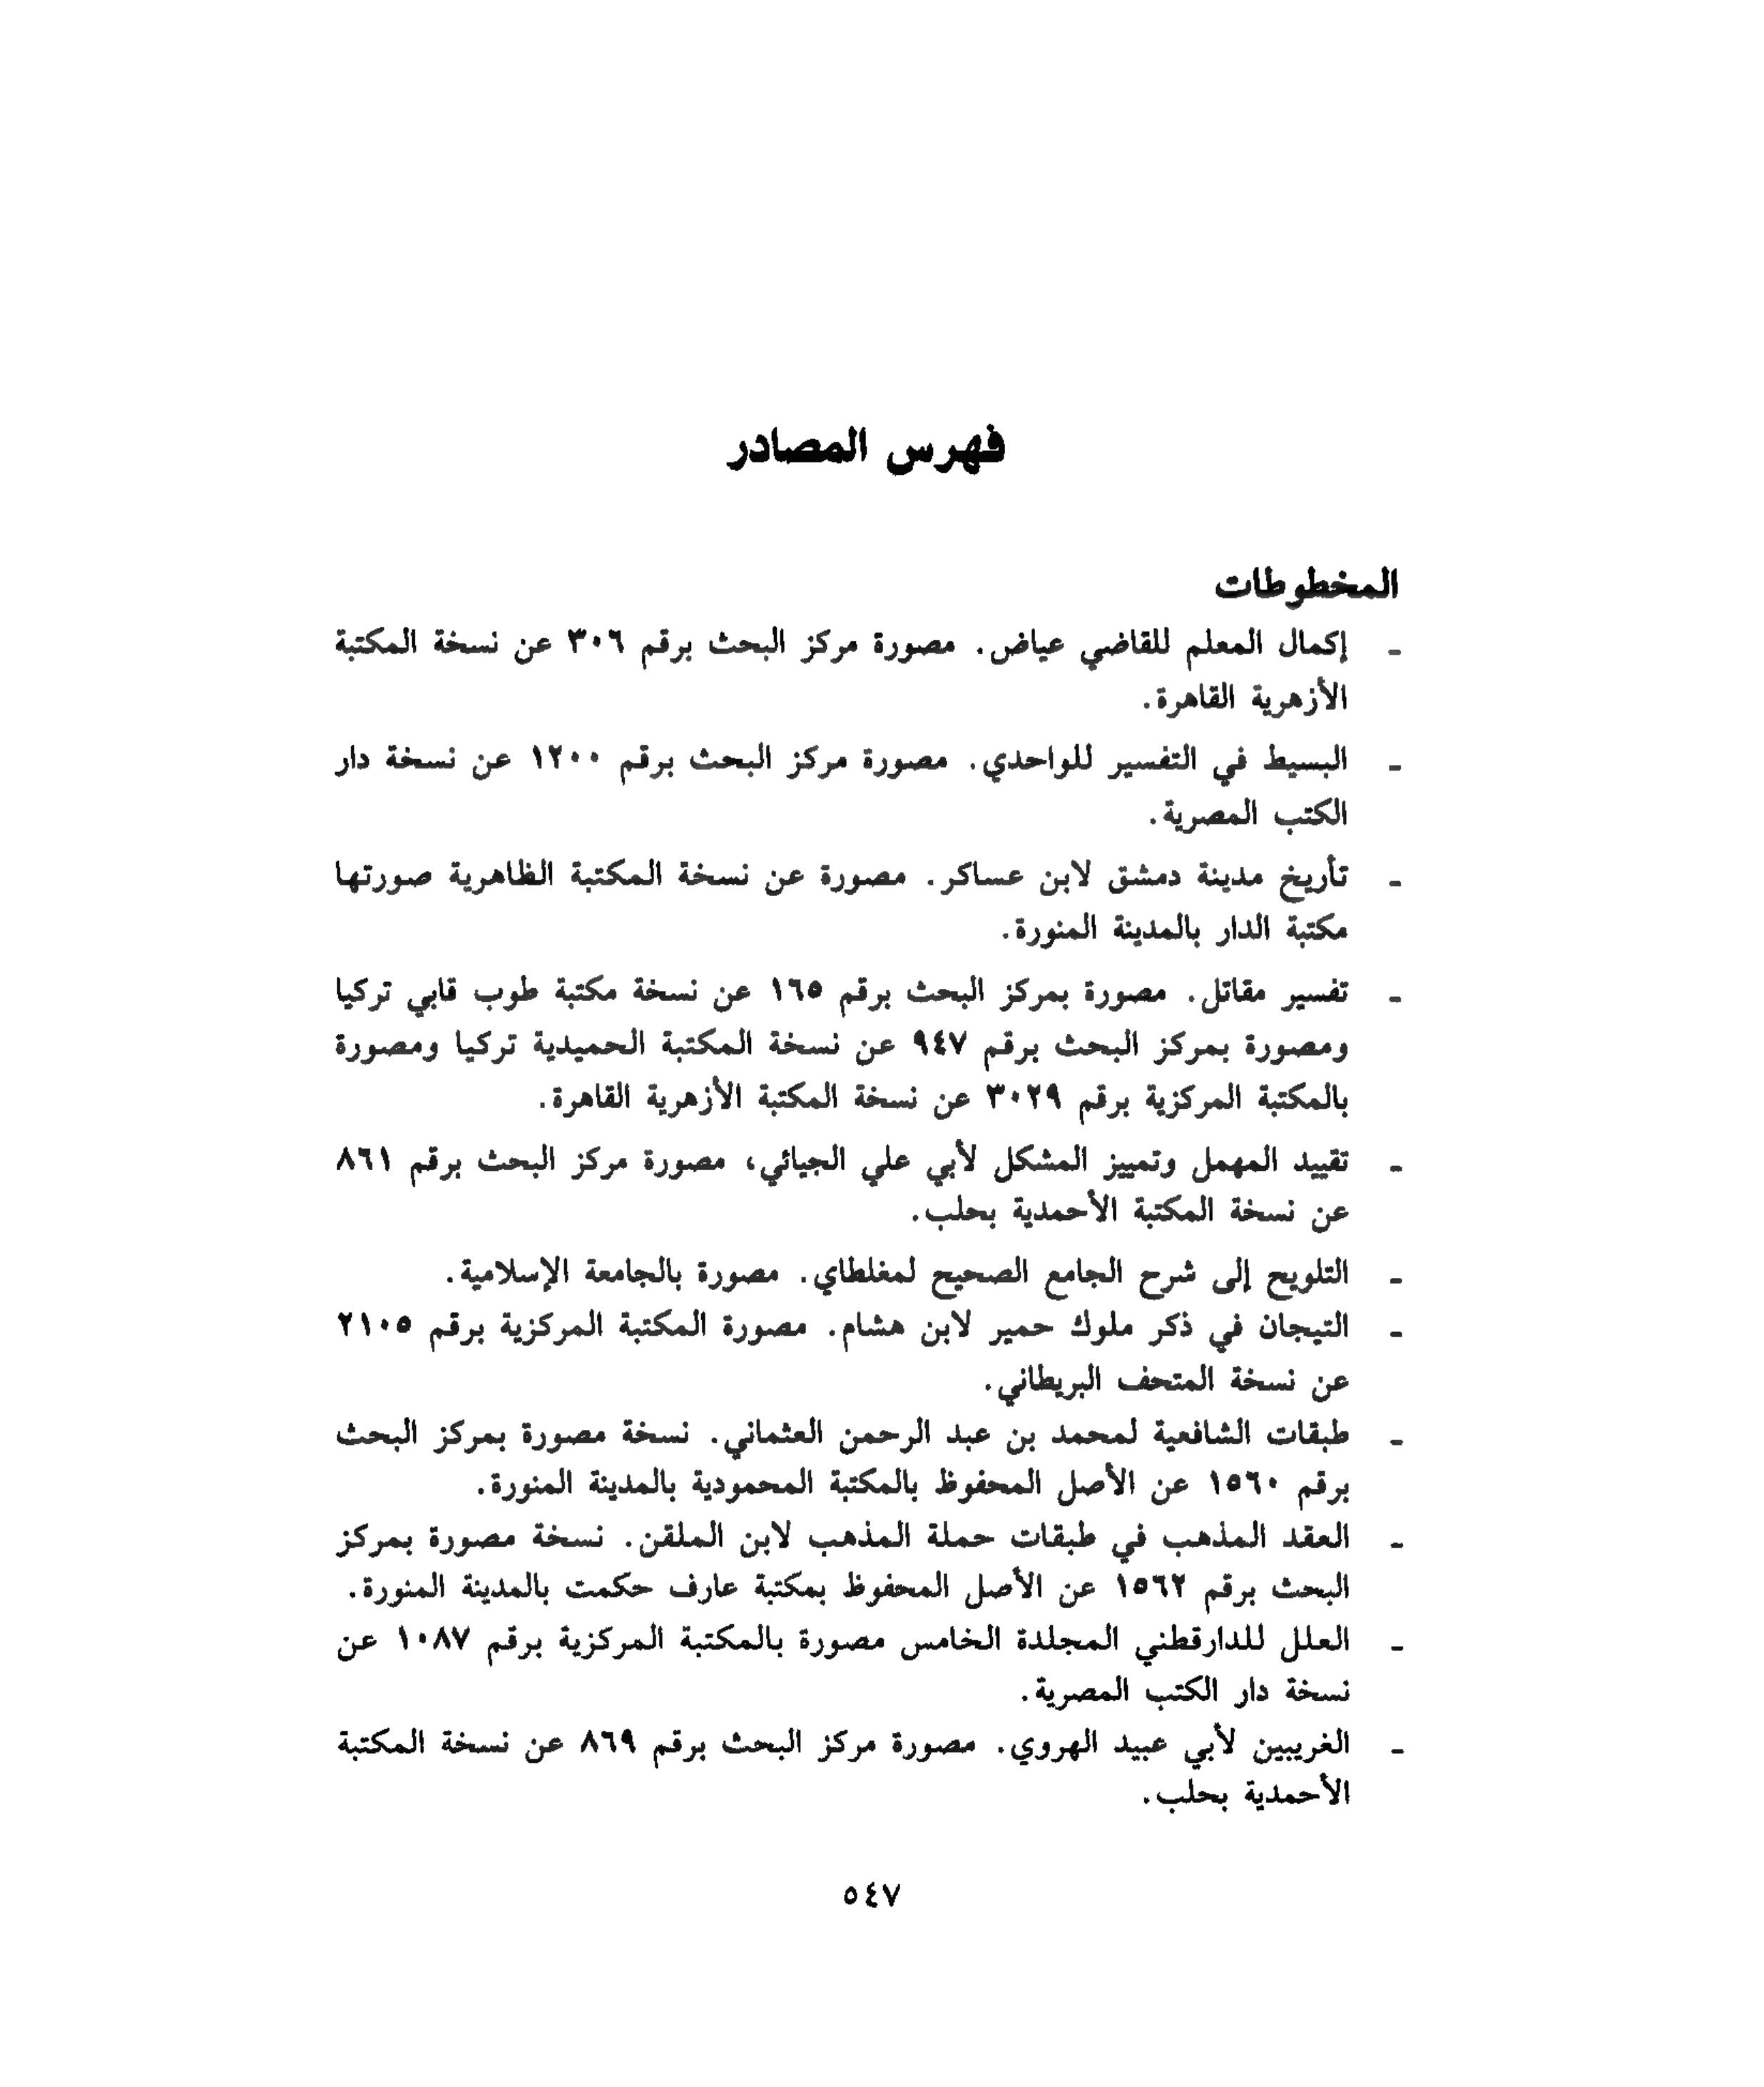 فهرس المصادر
المخطوطات
- إكمال المعلم للقاضي عياض. مصورة مركز البحث برقم ٣٠٦ عن نسخة المكتبة
الأزهرية القاهرة.
- البسيط في التفسير للواحدي. مصورة مركز البحث برقم ١٢٠٠ عن نسخة دار
الكتب المصرية.
- تأريخ مدينة دمشق لابن عساكر. مصورة عن نسخة المكتبة الظاهرية صورتها
مكتبة الدار بالمدينة المنورة.
- تفسير مقاتل. مصورة بمركز البحث برقم ١٦٥ عن نسخة مكتبة طوب قابي تركيا
ومصورة بمركز البحث برقم ٩٤٧ عن نسخة المكتبة الحميدية تركيا ومصورة
بالمكتبة المركزية برقم ٣٠٢٩ عن نسخة المكتبة الأزهرية القاهرة.
- تقييد المهمل وتمييز المشكل لأبي علي الجيائي، مصورة مركز البحث برقم ٨٦١
عن نسخة المكتبة الأحمدية بحلب.
- التلويح إلى شرح الجامع الصحيح لمغلطاي. مصورة بالجامعة الإسلامية.
- التيجان في ذكر ملوك حمير لابن هشام. مصورة المكتبة المركزية برقم ٢١٠٥
عن نسخة المتحف البريطاني.
- طبقات الشافعية لمحمد بن عبد الرحمن العثماني. نسخة مصورة بمركز البحث
برقم ١٥٦٠ عن الأصل المحفوظ بالمكتبة المحمودية بالمدينة المنورة.
- العقد المذهب في طبقات حملة المذهب لابن الملقن. نسخة مصورة بمركز
البحث برقم ١٥٦٢ عن الأصل المحفوظ بمكتبة عارف حكمت بالمدينة المنورة.
- العلل للدارقطني المجلدة الخامس مصورة بالمكتبة المركزية برقم ١٠٨٧ عن
نسخة دار الكتب المصرية.
- الغريبين لأبي عبيد الهروي. مصورة مركز البحث برقم ٨٦٩ عن نسخة المكتبة
الأحمدية بحلب.
٥٤٧